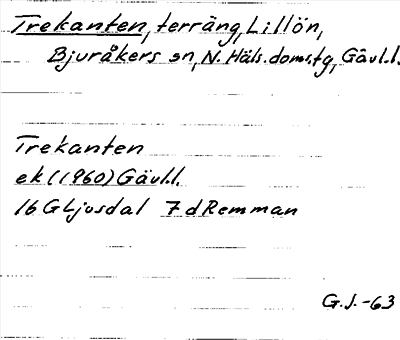 Trekanten, terräng, Lillön,
Bjuråkers sn, N. Häls. doms.tg, Gävl.l.
Trekanten
ek (1960) Gävl.l.
16 G Ljusdal 7 d Remman
G.J.-63